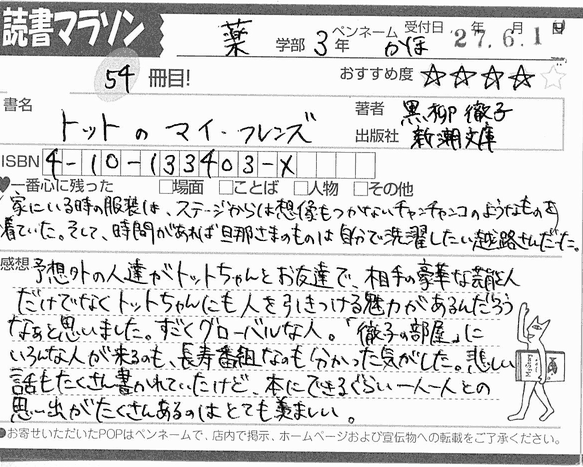 読書マラソン
薬 学部 3年 ペンネーム かほ 受付日 27.年6.月1日
54 冊目! おすすめ度 ☆☆☆☆☆
書名 トットの マイ・フレンズ
著者 黒柳 徹子
出版社 新潮文庫
ISBN 4-10-133403-X
♥一番心に残った □場面 □ことば □人物 □その他
家にいる時の服装は、ステージからは想像もつかないチャンチャンコのようなものを
着ていた。そして、時間があれば旦那さまのものは自分で洗濯したい越路さんだった。
感想 予想外の人達がトットちゃんとお友達で、相手の豪華な芸能人
だけでなくトットちゃんにも人を引きつける魅力があるんだろう
なぁと思いました。すごくグローバルな人。「徹子の部屋」に
いろんな人が来るのも、長寿番組なのも分かった気がした。悲しい
話もたくさん書かれていたけど、本にできるぐらい一人一人との
思い出がたくさんあるのはとても羨ましい。
●お寄せいただいたPOPはペンネームで、店内で掲示、ホームページおよび宣伝物への転載をご了承ください。